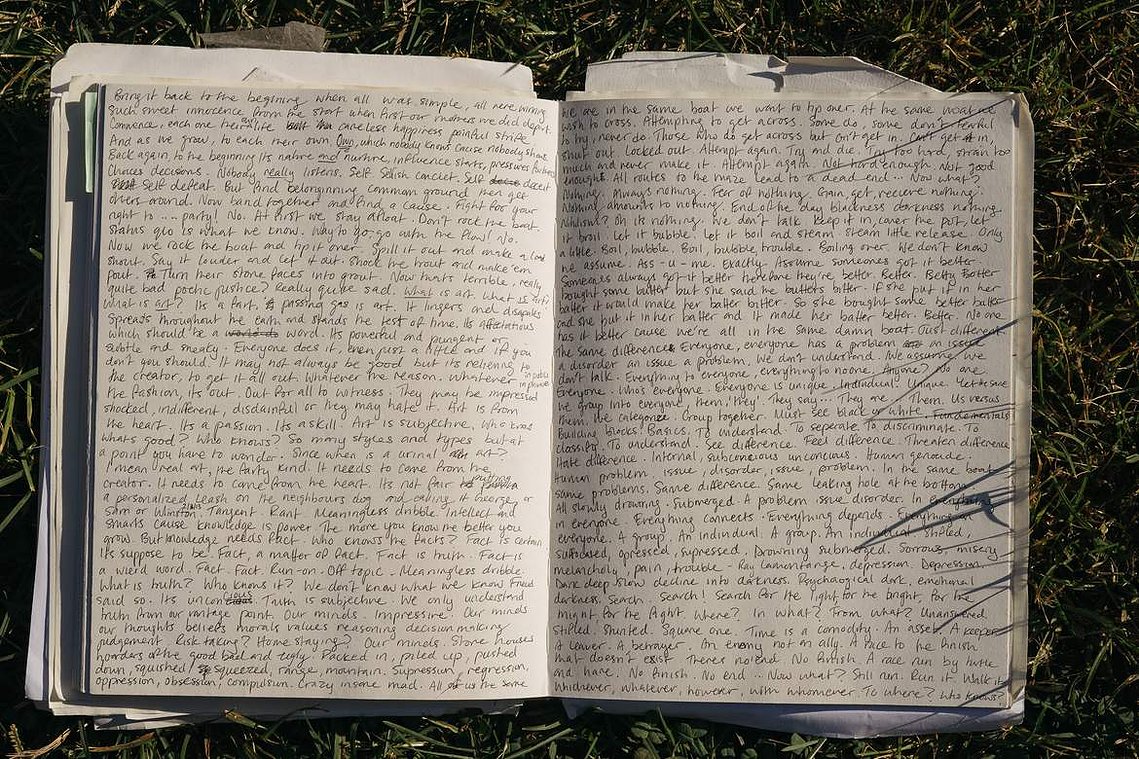 Bring it back to the begining when all was simple, all were winning
Such sweet innocence from the start when first our mothers we did depart.
Commence, each one their own life careless happiness painful strife
And as we grow, to each their own. Own, which nobody knows cause nobody shows.
Back again to the beginning its nature and nurture, influence starts, pressures
Choices decisions. Nobody really listens. Self Selfish conciet. Self deceit
Self defeat. But find belonginning common ground then get
others around. Now band together and find a cause. Fight for your
right to .... party! No. At first we stay afloat. Don't rock the boat
Status quo is what we know. Way to go-go with the flow! No.
Now we rock the boat and tip it over. Spill it out and make a
shout. Say it louder and let it out. Shock the trout and make 'em
pout. Turn their stone faces into grout. Now thats terrible, really
quite bad poetic justice? Really quite sad. What is art what is art?
What is art? Its a fart. passing gas is art. It lingers and disipates
Spreads throughout the earth and stands the test of time. Its
which should be a word. Its powerful and pungent or
subtle and sneaky. Everyone does it, even just a little and if you
don't you should. It may not always be good but its relieving to
the creator, to get it all out. Whatever the reason. Whatever
the fashion, its out. Out for all to witness. They may be impressed
shocked, indifferent, disdainful or they may hate it. Art is from
the heart. Its a passion. Its a skill. Art is subjective, who knows
whats good? Who knows? So many styles and types but at
a point you have to wonder. Since when is a urinal art?
I mean real art, the farty kind. It needs to come from the
creator. It needs to come from the heart. Its not fair
a personalized leash on the neighbours dog and calling it George or
Sam or Winston. Tangent. Rant. Meaningless dribble. Intellect and
smarts cause knowledge is power. The more you know the better you
grow. But knowledge needs fact. Who knows the facts? Fact is certain
its suppose to be. Fact, a matter of fact. Fact is truth. Fact is
a wierd word. Fact. Fact. Run-on. Off topic. Meaningless dribble.
What is truth? Who knows it? We don't know what we know Freud
said so. Its uncon Truth is subjective. We only understand
truth from our vintage point. Our minds. Impressive. Our minds
our thoughts beliefs morals values reasoning decision making
judgement. Risk taking? Home staying? Our minds. Store houses
horders of the good bad and ugly. Packed in, piled up, pushed
down, squished! squeezed, range, mountain. Supression, regression,
oppression, obsession, compulsion. Crazy insane mad. All of us the same
We are in the same boat we want to tip over. At the same water we
wish to cross. Attempting to get across. Some do, some don't fearful
to try, never do. Those who do get across but can't get in, can't get in,
shut out. Locked out. Attempt again. Try and die. Try too hard, strain too
much and never make it. Attempt again. Not hard enough, Not good
enough. All routes to the maze lead to a dead end... Now what?
Nothing. Always nothing. Fear of nothing. Gain, get, recieve nothing.
Nothing amounts to nothing. End of the day blackness darkness nothing
Nihilism? Oh its nothing. We don't talk. Keep it in, cover the pot, let
it broil. Let it bubble. Let it boil and steam steam little release. Only
a little. Boil, bubble. Boil, bubble, trouble. Boiling over. We don't know
we assume. Ass-u-me. Exactly. Assume someones got it better
Someones always got it better therefore they're better. Better. Betty Botter
bought some butter but she said the butters bitter. If she put it in her
batter it would make her batter bitter. So she bought some better batter
and she put it in her batter and it made her batter better. Better. No one
has it better cause we're all in the same damn boat. Just different
the same differences. Everyone, everyone has a problem an issue
a disorder an issue a problem. We don't understand. We assume. We
don't talk. Everything to everyone, everything to noone. Anyone? No one
Everyone. Who's everyone. Everyone is unique. Individual. Unique. Yet
we group into everyone, them, 'they'. They say... They are. Them. Us versus
them. We categorize. Group together. Must see black or white. Fundamentals
Building blocks. Basics. To understand. To seperate. To discriminate. To
classify. To understand. See difference. Feel difference. Threaten difference
Hate difference. Internal, subconcious unconcious. Human genocide.
human problem. issue, disorder, issue, problem. In the same boat
same problems. Same difference. Same leaking hole at the bottom
all slowly drowning. Submerged. A problem issue disorder. In everything
in everyone. Everything connects. Everything depends. Everything in
everyone. A group. An individual. A group. An individual stifled,
suffocated, opressed, supressed. Drowning submerged. Sorrows, misery
melancholy, pain, trouble. Ray Lamontange, depression. Depression.
Dark deep slow decline into darkness. Psychological dark, emotional
darkness. Search. Search! Search for the light for the bright, for the
might, for the fight. Where? In what? From what? Unanswered.
stifled. Stunted. Square one. Time is a comodity. An asset. A keeper
A leaver. A betrayer. An enemy not an ally. A race to the finish
that doesn't exist. Theres no end. No finish. A race run by turtle
and hare. No finish. No end... Now what? Still run. Run it. Walk it
whichever, whatever, however, with whomever. To where? Who knows?